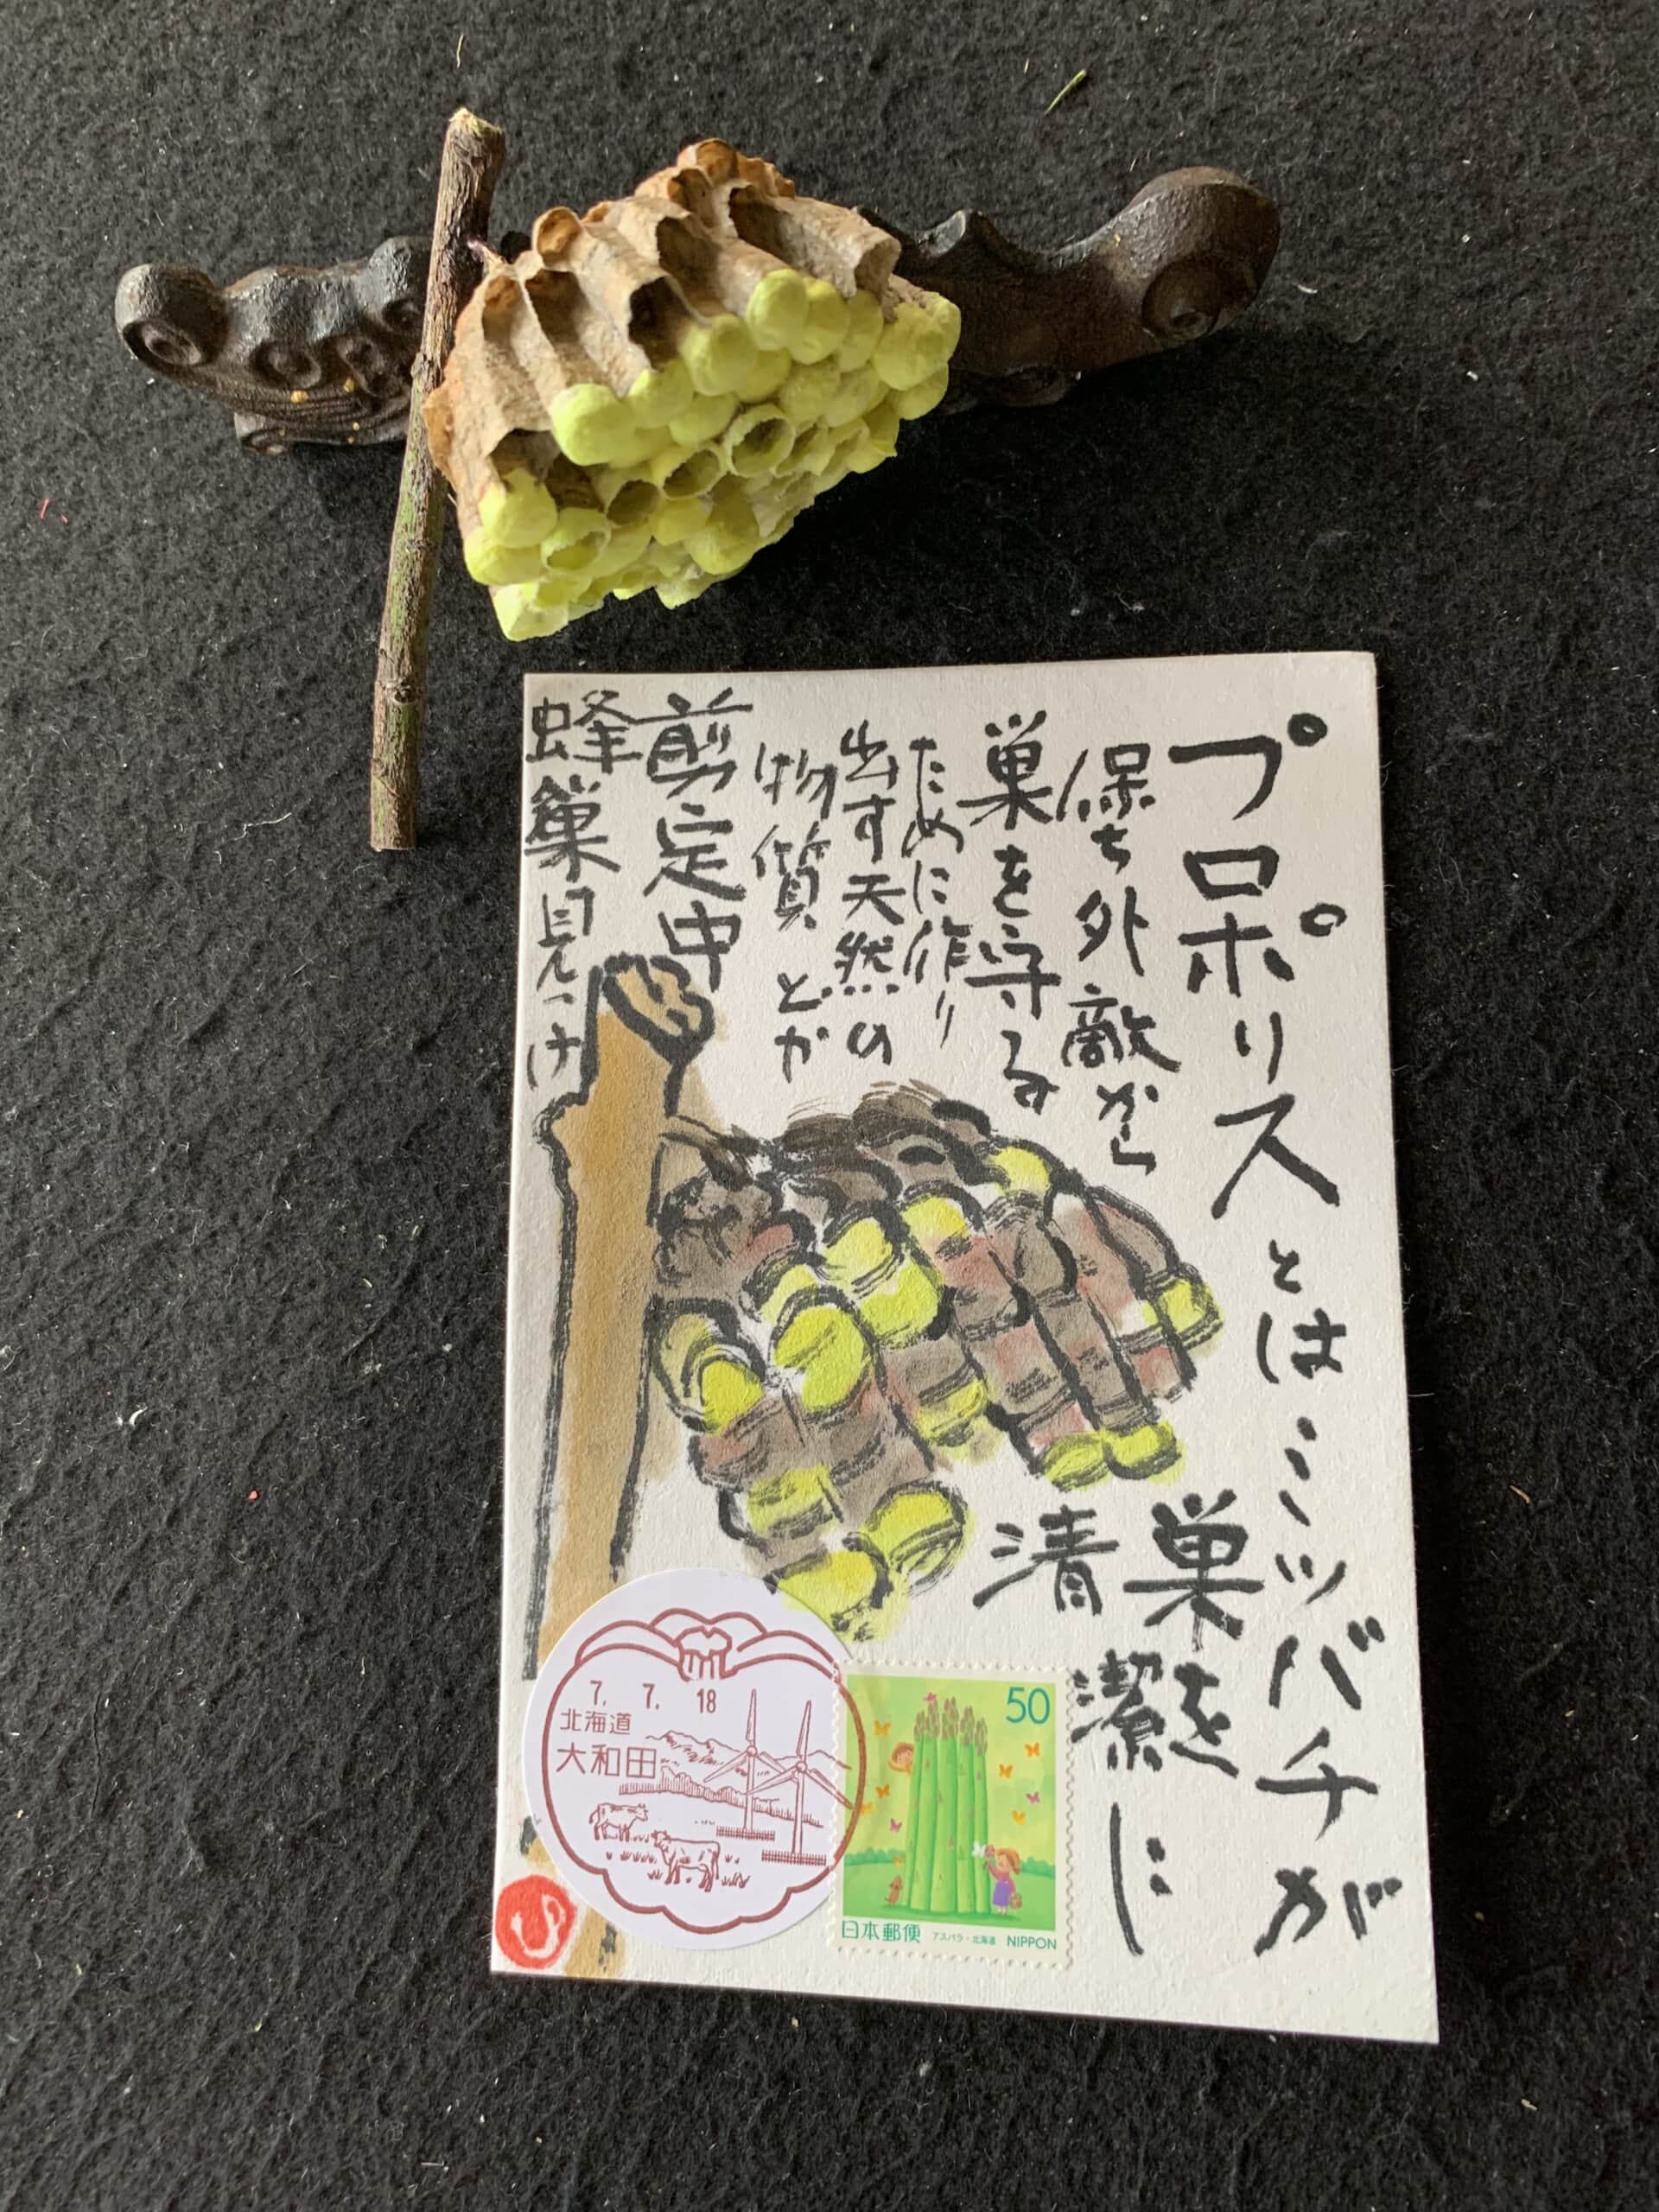 プロポリスとは
ミツバチが
巣を
清潔に
保ち外敵から
巣を守る
ために作り
出す天然の
物質とか
剪定中
蜂巣見つけ
7. 7. 18
北海道
大和田
50
日本郵便 アスパラ・北海道 NIPPON
ひ